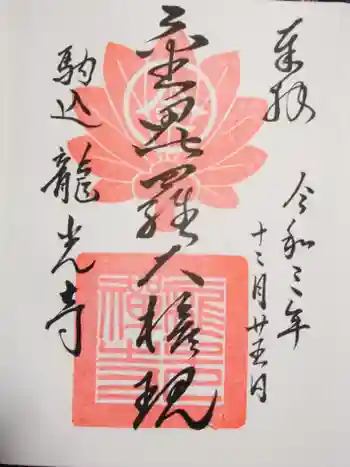 奉拝
令和三年
十二月廿五日
金毘羅大権現
駒込龍光寺